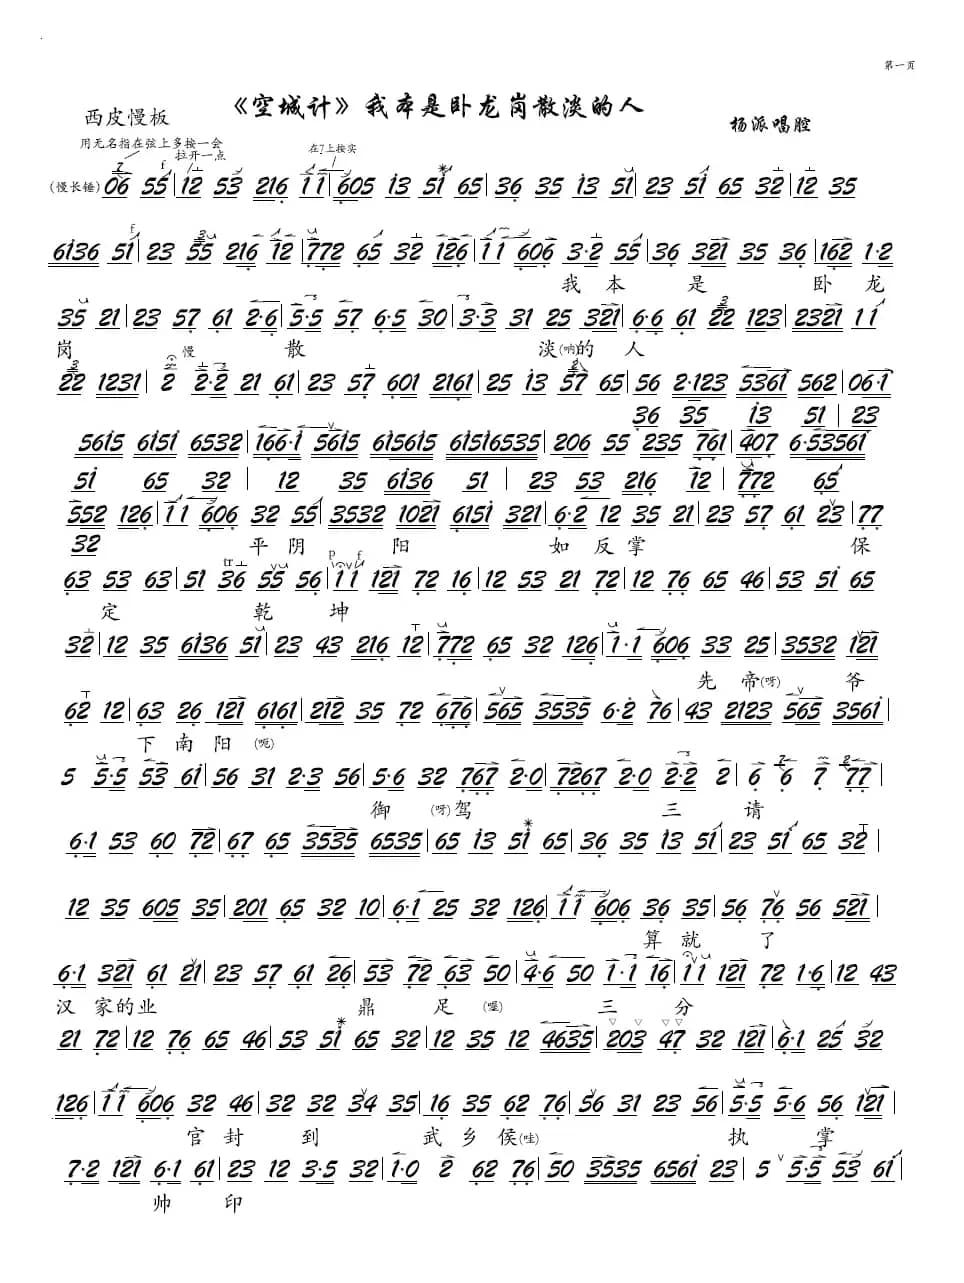 第一页
《空城计》我本是卧龙岗散淡的人
西皮慢板
杨派唱腔
用无名指在弦上多按一会
拉开一点
在7上按实
(慢长锤) 06 55 | 12 53 216 11 | 605 13 51 65 | 36 35 13 51 | 23 51 65 32 | 12 35
6136 51 | 23 55 216 12 | 772 65 32 126 | 11 606 3·2 55 | 36 321 35 36 | 162 1·2
我 本 是 卧 龙
35 21 | 23 57 61 2·6 | 5·5 57 6·5 30 | 3·3 31 25 321 | 6·6 61 22 123 | 2321 11
岗 慢 散 淡(呐)的 人
22 1231 | 2 2·2 21 61 | 23 57 601 2161 | 25 13 57 65 | 56 2·123 5361 562 | 06·1
36 35 13 51 | 23
5615 6151 6532 | 166·1 5615 615615 61516535 | 206 55 235 761 | 407 6·53561
51 65 32 | 12 35 6136 51 | 23 53 216 12 | 772 65
552 126 | 11 606 32 55 | 3532 1021 6151 321 | 6·2 12 35 21 | 23 57 61 23 | 77
32 平 阴 阳 如 反 掌 保
63 53 63 | 51 36 55 56 | 11 121 72 16 | 12 53 21 72 | 12 76 65 46 | 53 51 65
定 乾 坤
32 | 12 35 6136 51 | 23 43 216 12 | 772 65 32 126 | 1·1 606 33 25 | 3532 121
先 帝(呀) 爷
62 12 | 63 26 121 6161 | 212 35 72 676 | 565 3535 6·2 76 | 43 2123 565 3561
下 南 阳 (呃)
5 5·5 53 61 | 56 31 2·3 56 | 5·6 32 767 2·0 | 7267 2·0 2·2 2 | 6 6 7 77
御 (呀)驾 三 请
6·1 53 60 72 | 67 65 3535 6535 | 65 13 51 65 | 36 35 13 51 | 23 51 65 32
12 35 605 35 | 201 65 32 10 | 6·1 25 32 126 | 11 606 36 35 | 56 76 56 521
算 就 了
6·1 321 61 21 | 23 57 61 26 | 53 72 63 50 | 4·6 50 1·1 16 | 11 121 72 1·6 | 12 43
汉 家的业 鼎 足 三 分
21 72 | 12 76 65 46 | 53 51 65 32 | 12 35 12 4635 | 203 47 32 121 | 6·1 25 32
126 | 11 606 32 46 | 32 32 34 35 | 16 35 62 76 | 56 31 23 56 | 5·5 5·6 56 121
官 封 到 武 乡 侯(哇) 执 掌
7·2 121 6·1 61 | 23 12 3·5 32 | 1·0 2 62 76 | 50 3535 6561 23 | 5 5·5 53 61
帅 印